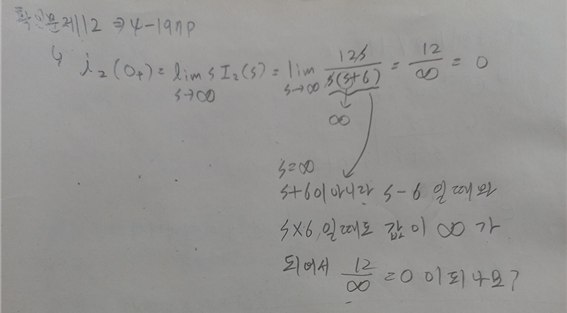 확인문제112 ⇒ 4-19np
↳ i₂(0₊) = lim_{s→∞} s I₂(s) = lim_{s→∞} 12s / s(s+6) = 12/∞ = 0
∞
s=∞
s+6이 아니라 s-6 일때와
s×6 일때도 값이 ∞ 가
되어서 12/∞ = 0 이 되나요?